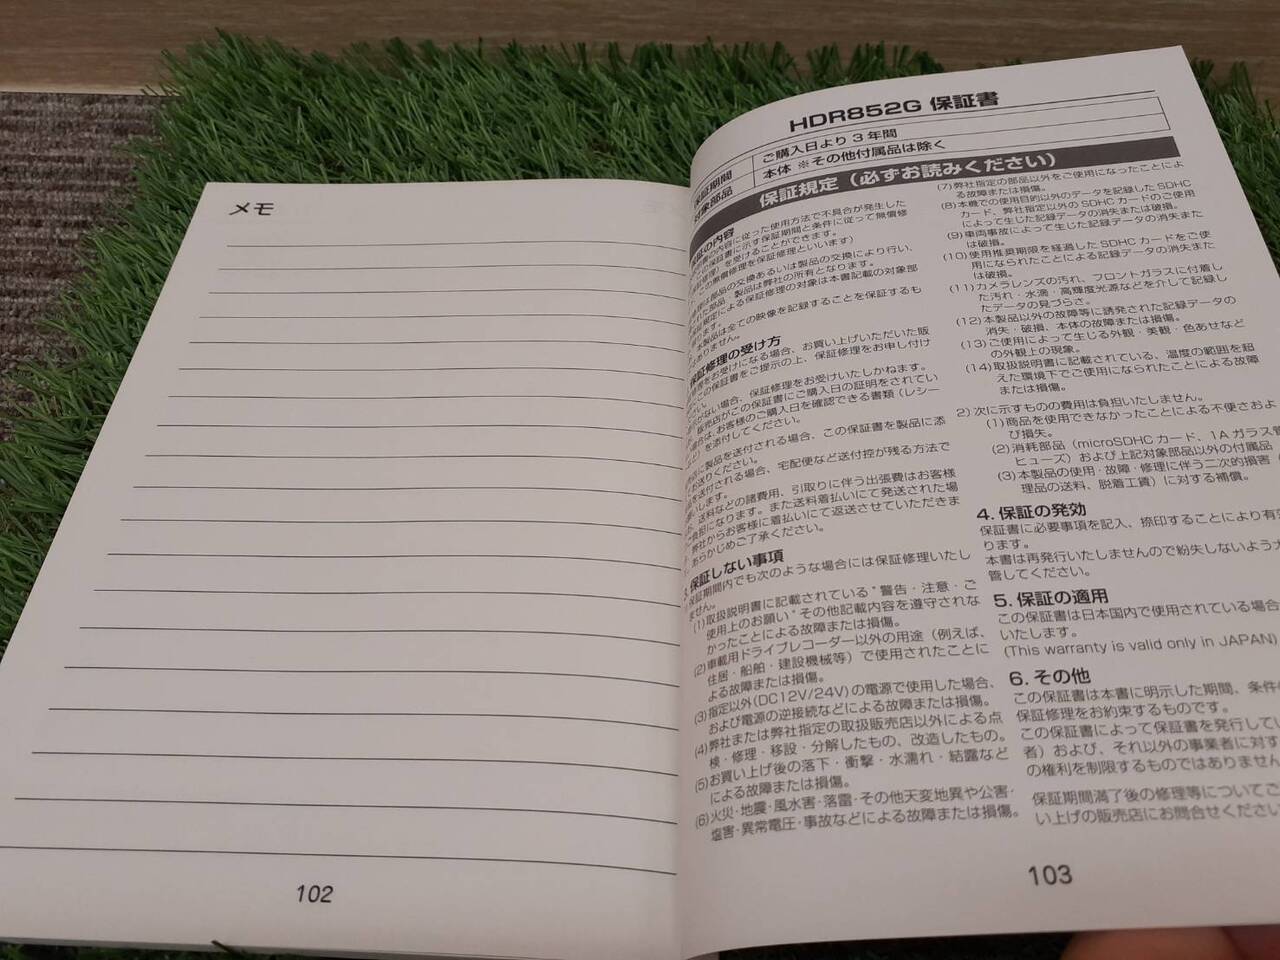 メモ
102
HDR852G 保証書
保証期間 ご購入日より 3 年間
対象部品 本体 ※その他付属品は除く
保証規定（必ずお読みください）
の内容
の内容に従った使用方法で不具合が発生した
保証書に示す保証期間と条件に従って無償修
を受けることができます。
この無償修理を保証修理といいます）
は部品の交換あるいは製品の交換により行い、
た部品・製品は弊社の所有となります。
規定による保証修理の対象は本書記載の対象部
ります。
本製品は全ての映像を記録することを保証するも
ありません。
保証修理の受け方
をお受けになる場合、お買い上げいただいた販
この保証書をご提示の上、保証修理をお申し付け
がない場合、保証修理をお受けいたしかねます。
販売店がこの保証書にご購入日の証明をされてい
場合は、お客様のご購入日を確認できる書類（レシー
を添付してください。
に製品を送付される場合、この保証書を製品に添
お送りください。
を送付される場合、宅配便など送付控が残る方法で
いします。
送料などの諸費用、引取りに伴う出張費はお客様
負担になります。また送料着払いにて発送された場
弊社からお客様に着払いにて返送させていただきま
あらかじめご了承ください。
3. 保証しない事項
保証期間内でも次のような場合には保証修理いたし
ません。
(1) 取扱説明書に記載されている“警告・注意・ご
使用上のお願い”その他記載内容を遵守されな
かったことによる故障または損傷。
(2) 車載用ドライブレコーダー以外の用途（例えば、
住居・船舶・建設機械等）で使用されたことに
よる故障または損傷。
(3) 指定以外(DC12V/24V)の電源で使用した場合、
および電源の逆接続などによる故障または損傷。
(4) 弊社または弊社指定の取扱販売店以外による点
検・修理・移設・分解したもの、改造したもの。
(5) お買い上げ後の落下・衝撃・水濡れ・結露など
による故障または損傷。
(6) 火災・地震・風水害・落雷・その他天変地異や公害・
塩害・異常電圧・事故などによる故障または損傷。
(7) 弊社指定の部品以外をご使用になったことによ
る故障または損傷。
(8) 本機での使用目的以外のデータを記録した SDHC
カード、弊社指定以外の SDHC カードのご使用
によって生じた記録データの消失または破損。
(9) 車両事故によって生じた記録データの消失また
は破損。
(10) 使用推奨期限を経過した SDHC カードをご使
用になられたことによる記録データの消失また
は破損。
(11) カメラレンズの汚れ、フロントガラスに付着し
た汚れ・水滴・高輝度光源などを介して記録し
たデータの見づらさ。
(12) 本製品以外の故障等に誘発された記録データの
消失・破損、本体の故障または損傷。
(13) ご使用によって生じる外観・美観・色あせなど
の外観上の現象。
(14) 取扱説明書に記載されている、温度の範囲を超
えた環境下でご使用になられたことによる故障
または損傷。
2) 次に示すものの費用は負担いたしません。
(1) 商品を使用できなかったことによる不便さおよ
び損失。
(2) 消耗部品（microSDHC カード、1A ガラス管
ヒューズ）および上記対象部品以外の付属品
(3) 本製品の使用・故障・修理に伴う二次的損害（
理品の送料、脱着工賃）に対する補償。
4. 保証の発効
保証書に必要事項を記入、捺印することにより有効
ります。
本書は再発行いたしませんので紛失しないよう大
管してください。
5. 保証の適用
この保証書は日本国内で使用されている場合
いたします。
(This warranty is valid only in JAPAN)
6. その他
この保証書は本書に明示した期間、条件
保証修理をお約束するものです。
この保証書によって保証書を発行してい
者）および、それ以外の事業者に対す
の権利を制限するものではありません
保証期間満了後の修理等についてご
い上げの販売店にお問合せください
103